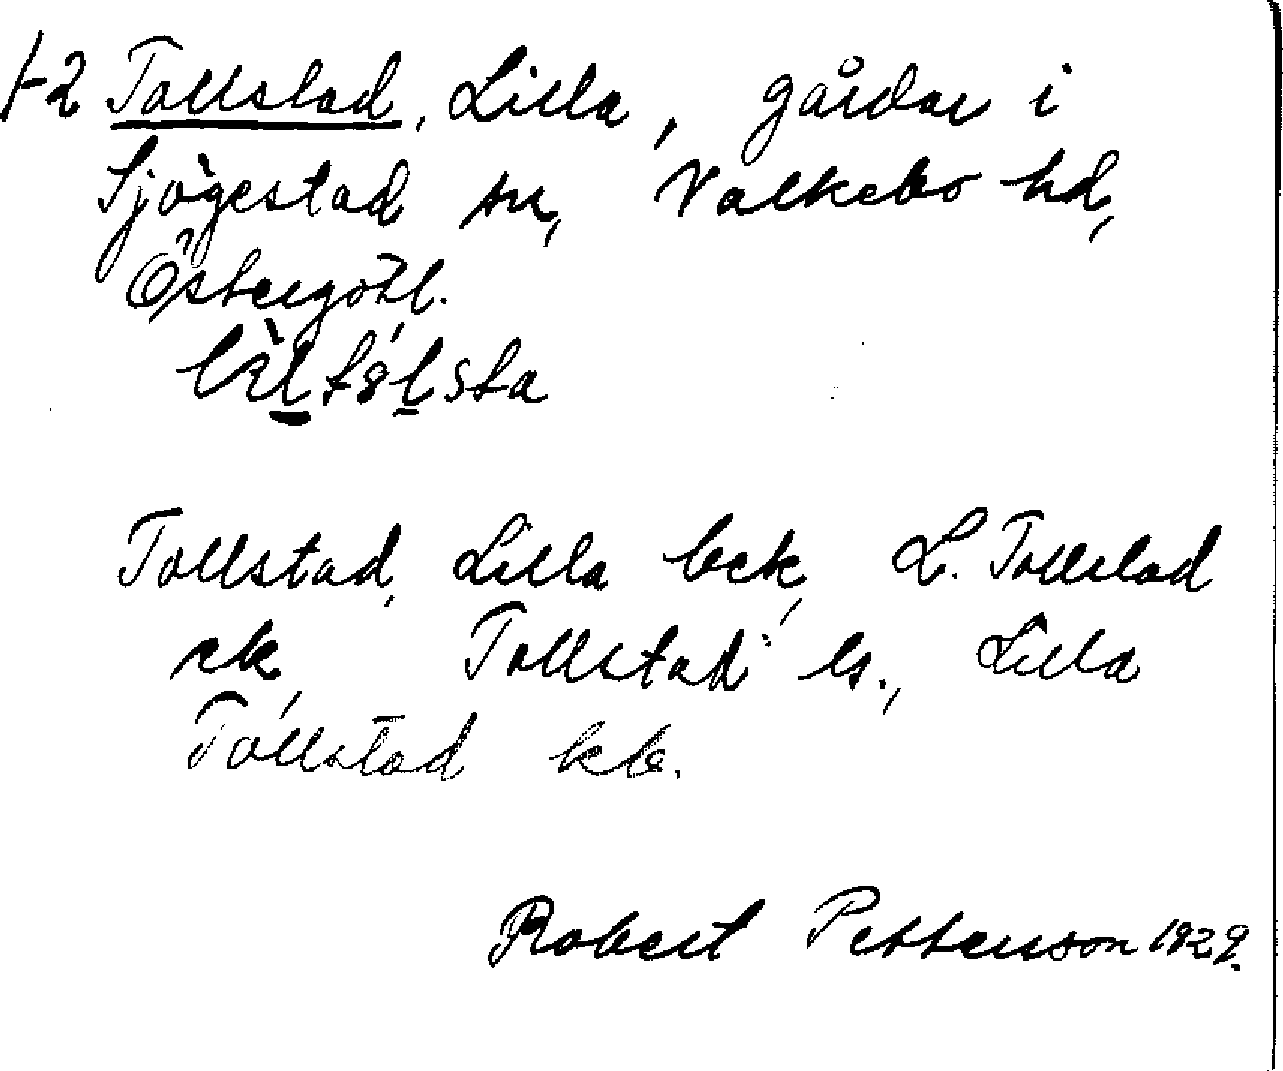 1-2 Tollstad, Lilla, gårdar i
Sjögestad sn, Valkebo hd,
Östergötl.
Tollstad, Lilla bck, L. Tollstad
ek, Tollstad ls., Lilla
Tollstad kb.
Robert Pettersson 1929.